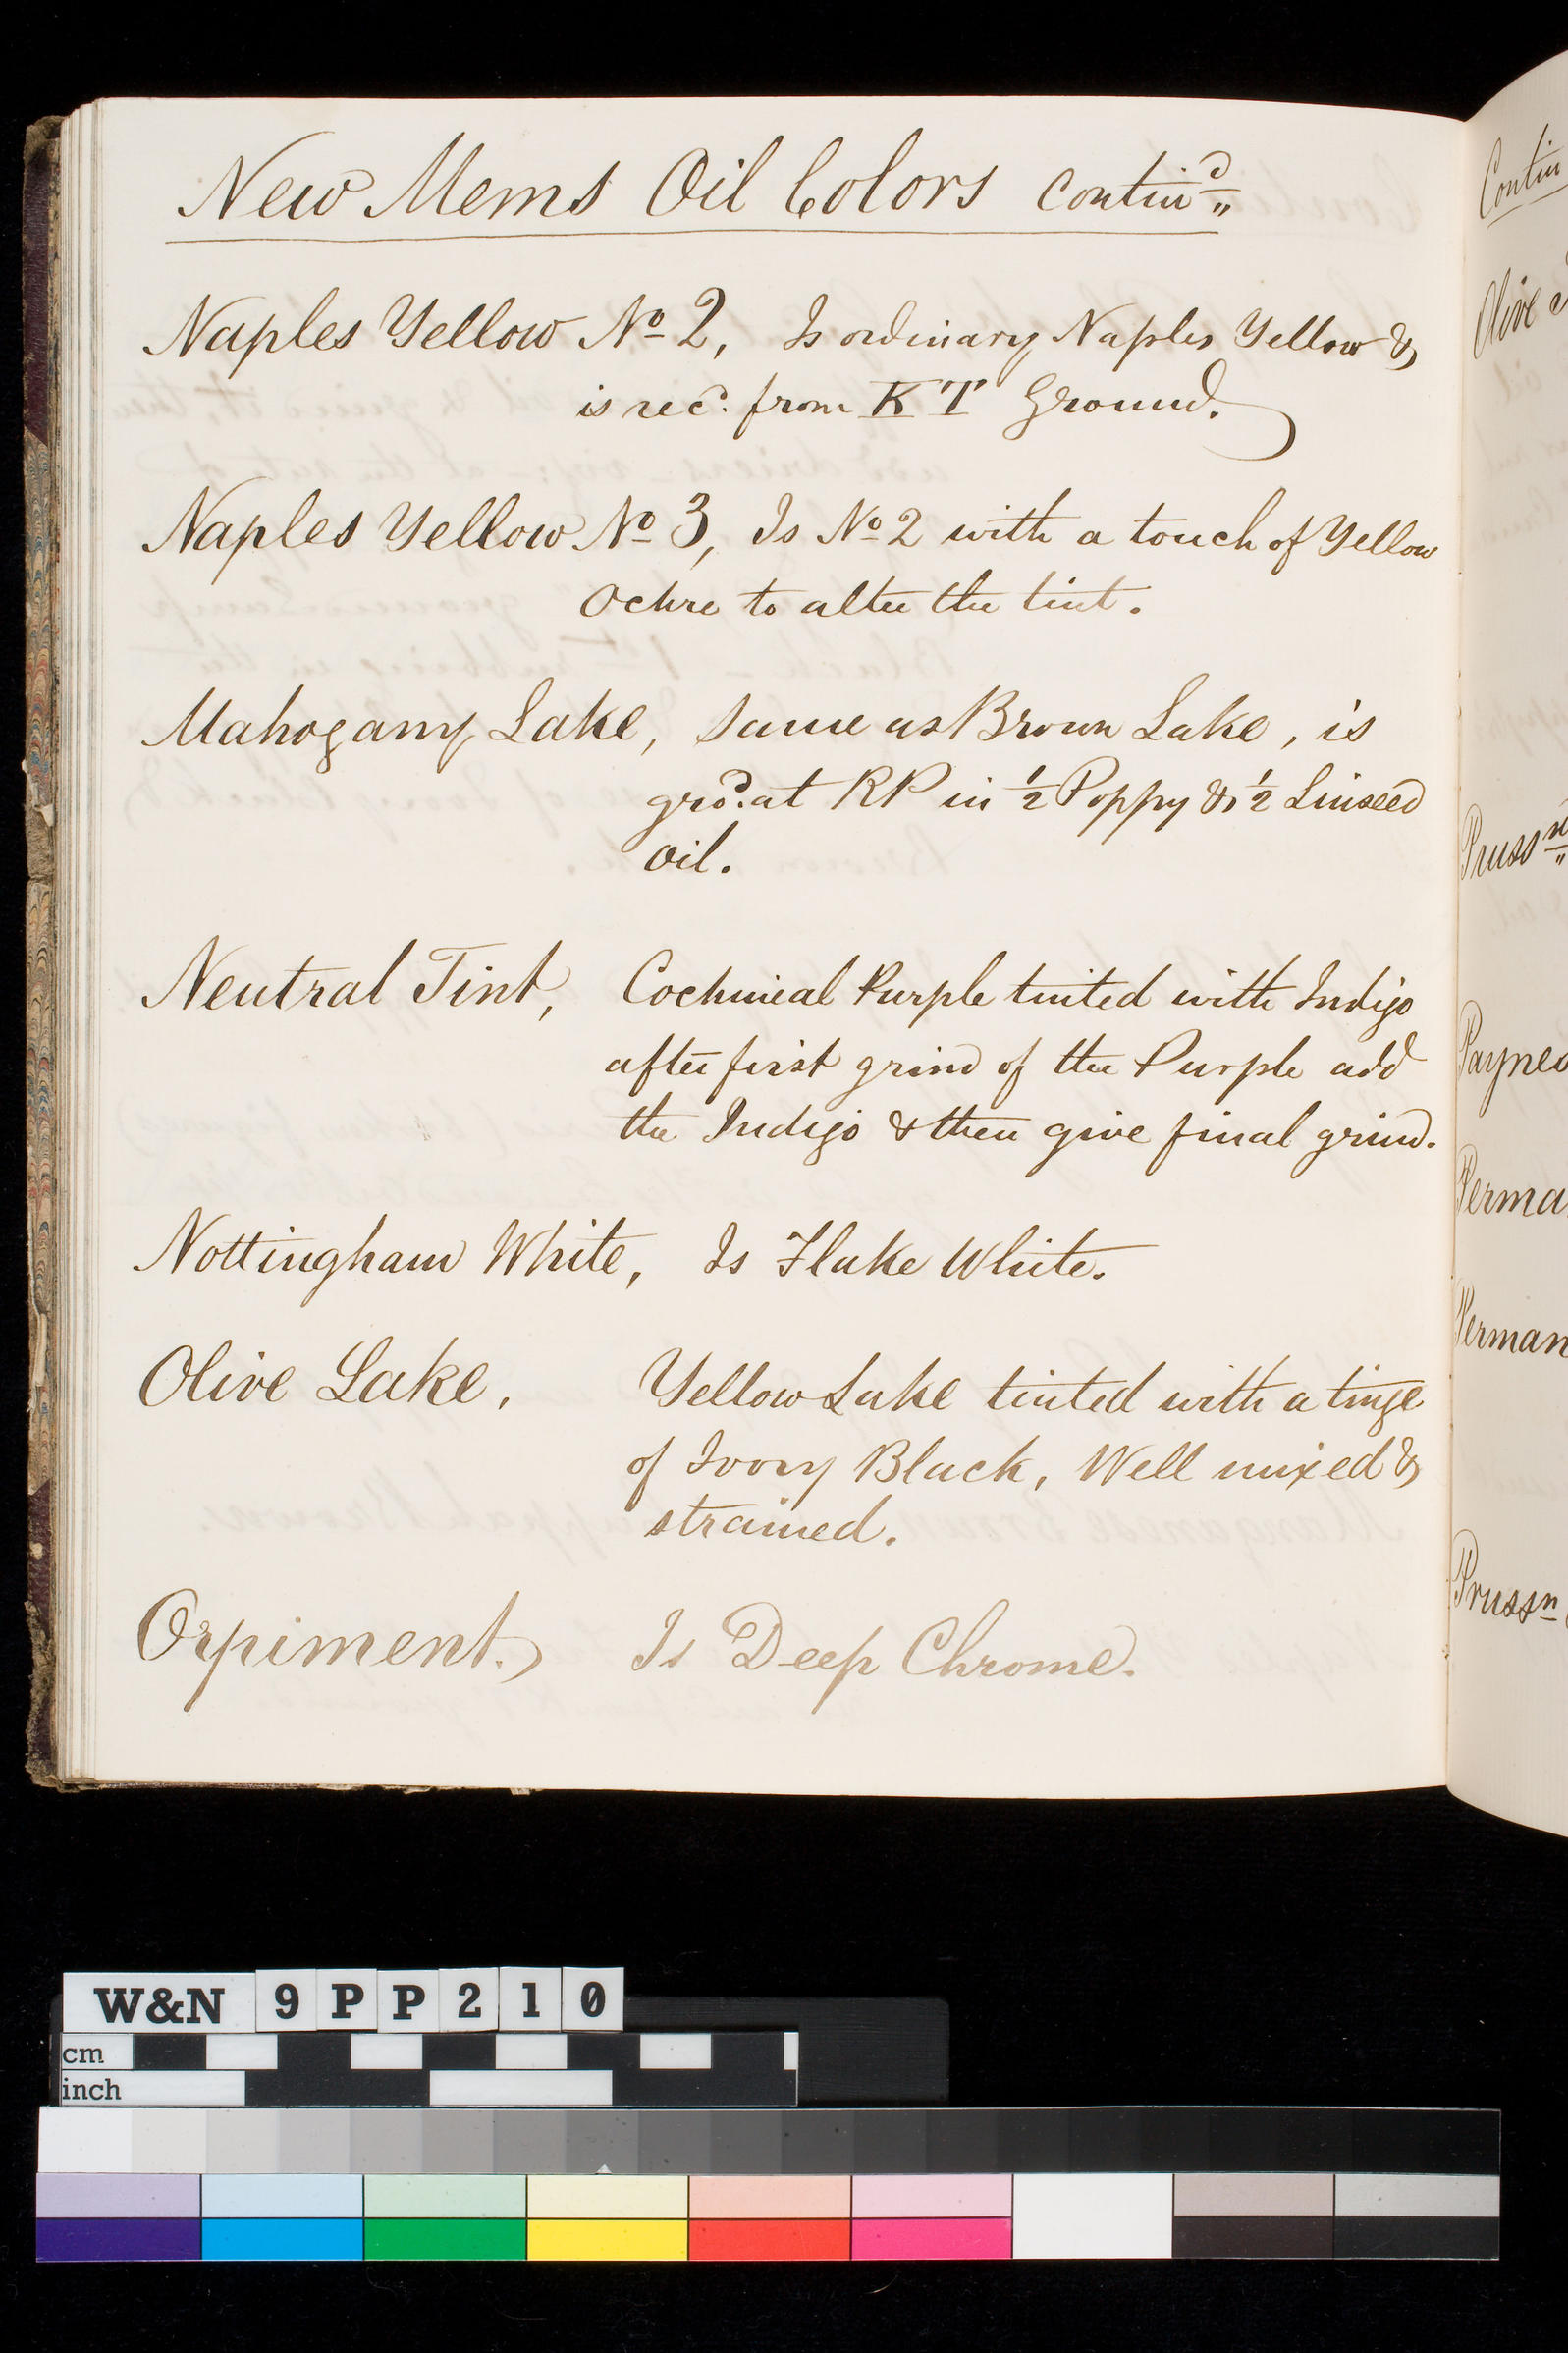 New Mems Oil Colors Contin^d
Naples Yellow No 2, Is ordinary Naples Yellow &
is rec^d. from KT Ground.
Naples Yellow No 3, Is No 2 with a touch of Yellow
Ochre to alter the tint.
Mahogany Lake, Same as Brown Lake, is
gro^d. at RP in ½ Poppy & ½ Linseed
oil.
Neutral Tint, Cochineal Purple tinted with Indigo
after first grind of the Purple add
the Indigo & then give final grind.
Nottingham White, Is Flake White.
Olive Lake, Yellow Lake tinted with a tinge
of Ivory Black, Well mixed &
strained.
Orpiment. Is Deep Chrome.
Contin
Olive
Pruss^n
Paynes
Perma
Perman
Pruss^n
W&N 9PP210
cm
inch